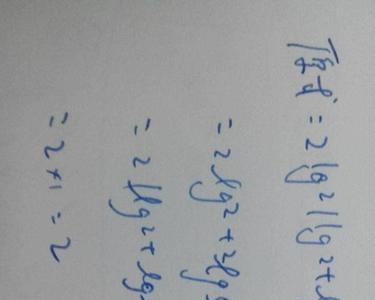 原式 = 2 lg2 (lg2 +
= 2 lg2 + 2lg
= 2 (lg2 + lg
= 2 × 1 = 2